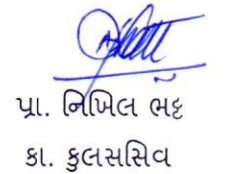 પ્રા. નિખિલ ભટ્ટ
કા. કુલસચિવ